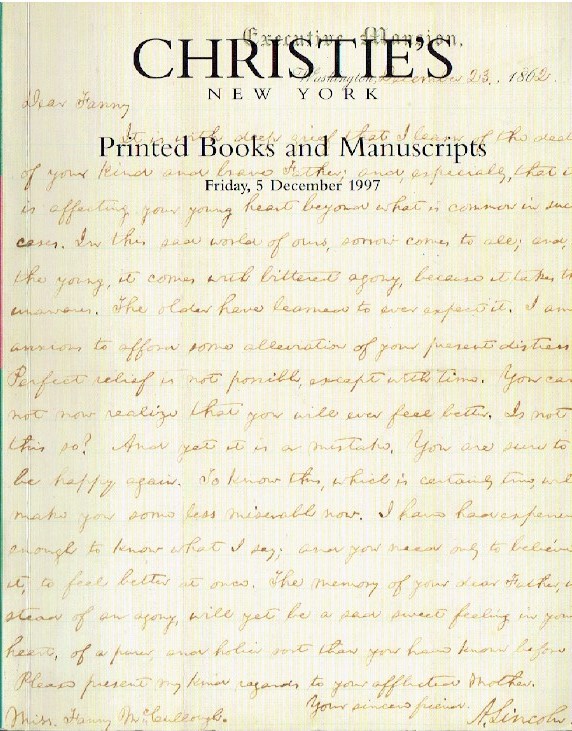 Executive Mansion,
CHRISTIE'S
Washington, December 23, 1862.
NEW YORK
Dear Fanny
It is with deep grief that I learn of the dea
Printed Books and Manuscripts
of your kind and brave Father; and, especially, that it
Friday, 5 December 1997
is affecting your young heart beyond what is common in suc
cases. In this sad world of ours, sorrow comes to all; and,
the young, it comes with bitterest agony, because it takes th
unawares. The older have learned to ever expect it. I am
anxious to afford some alleviation of your present distress
Perfect relief is not possible, except with time. You can
not now realize that you will ever feel better. Is not
this so? And yet it is a mistake. You are sure to
be happy again. To know this, which is certainly true, wil
make you some less miserable now. I have had experien
enough to know what I say; and you need only to believe
it, to feel better at once. The memory of your dear Father, i
stead of an agony, will yet be a sad sweet feeling in your
heart, of a purer, and holier sort than you have known before
Please present my kind regards to your afflicted mother.
Your sincere friend.
Miss. Fanny McCullough.
A. Lincoln.